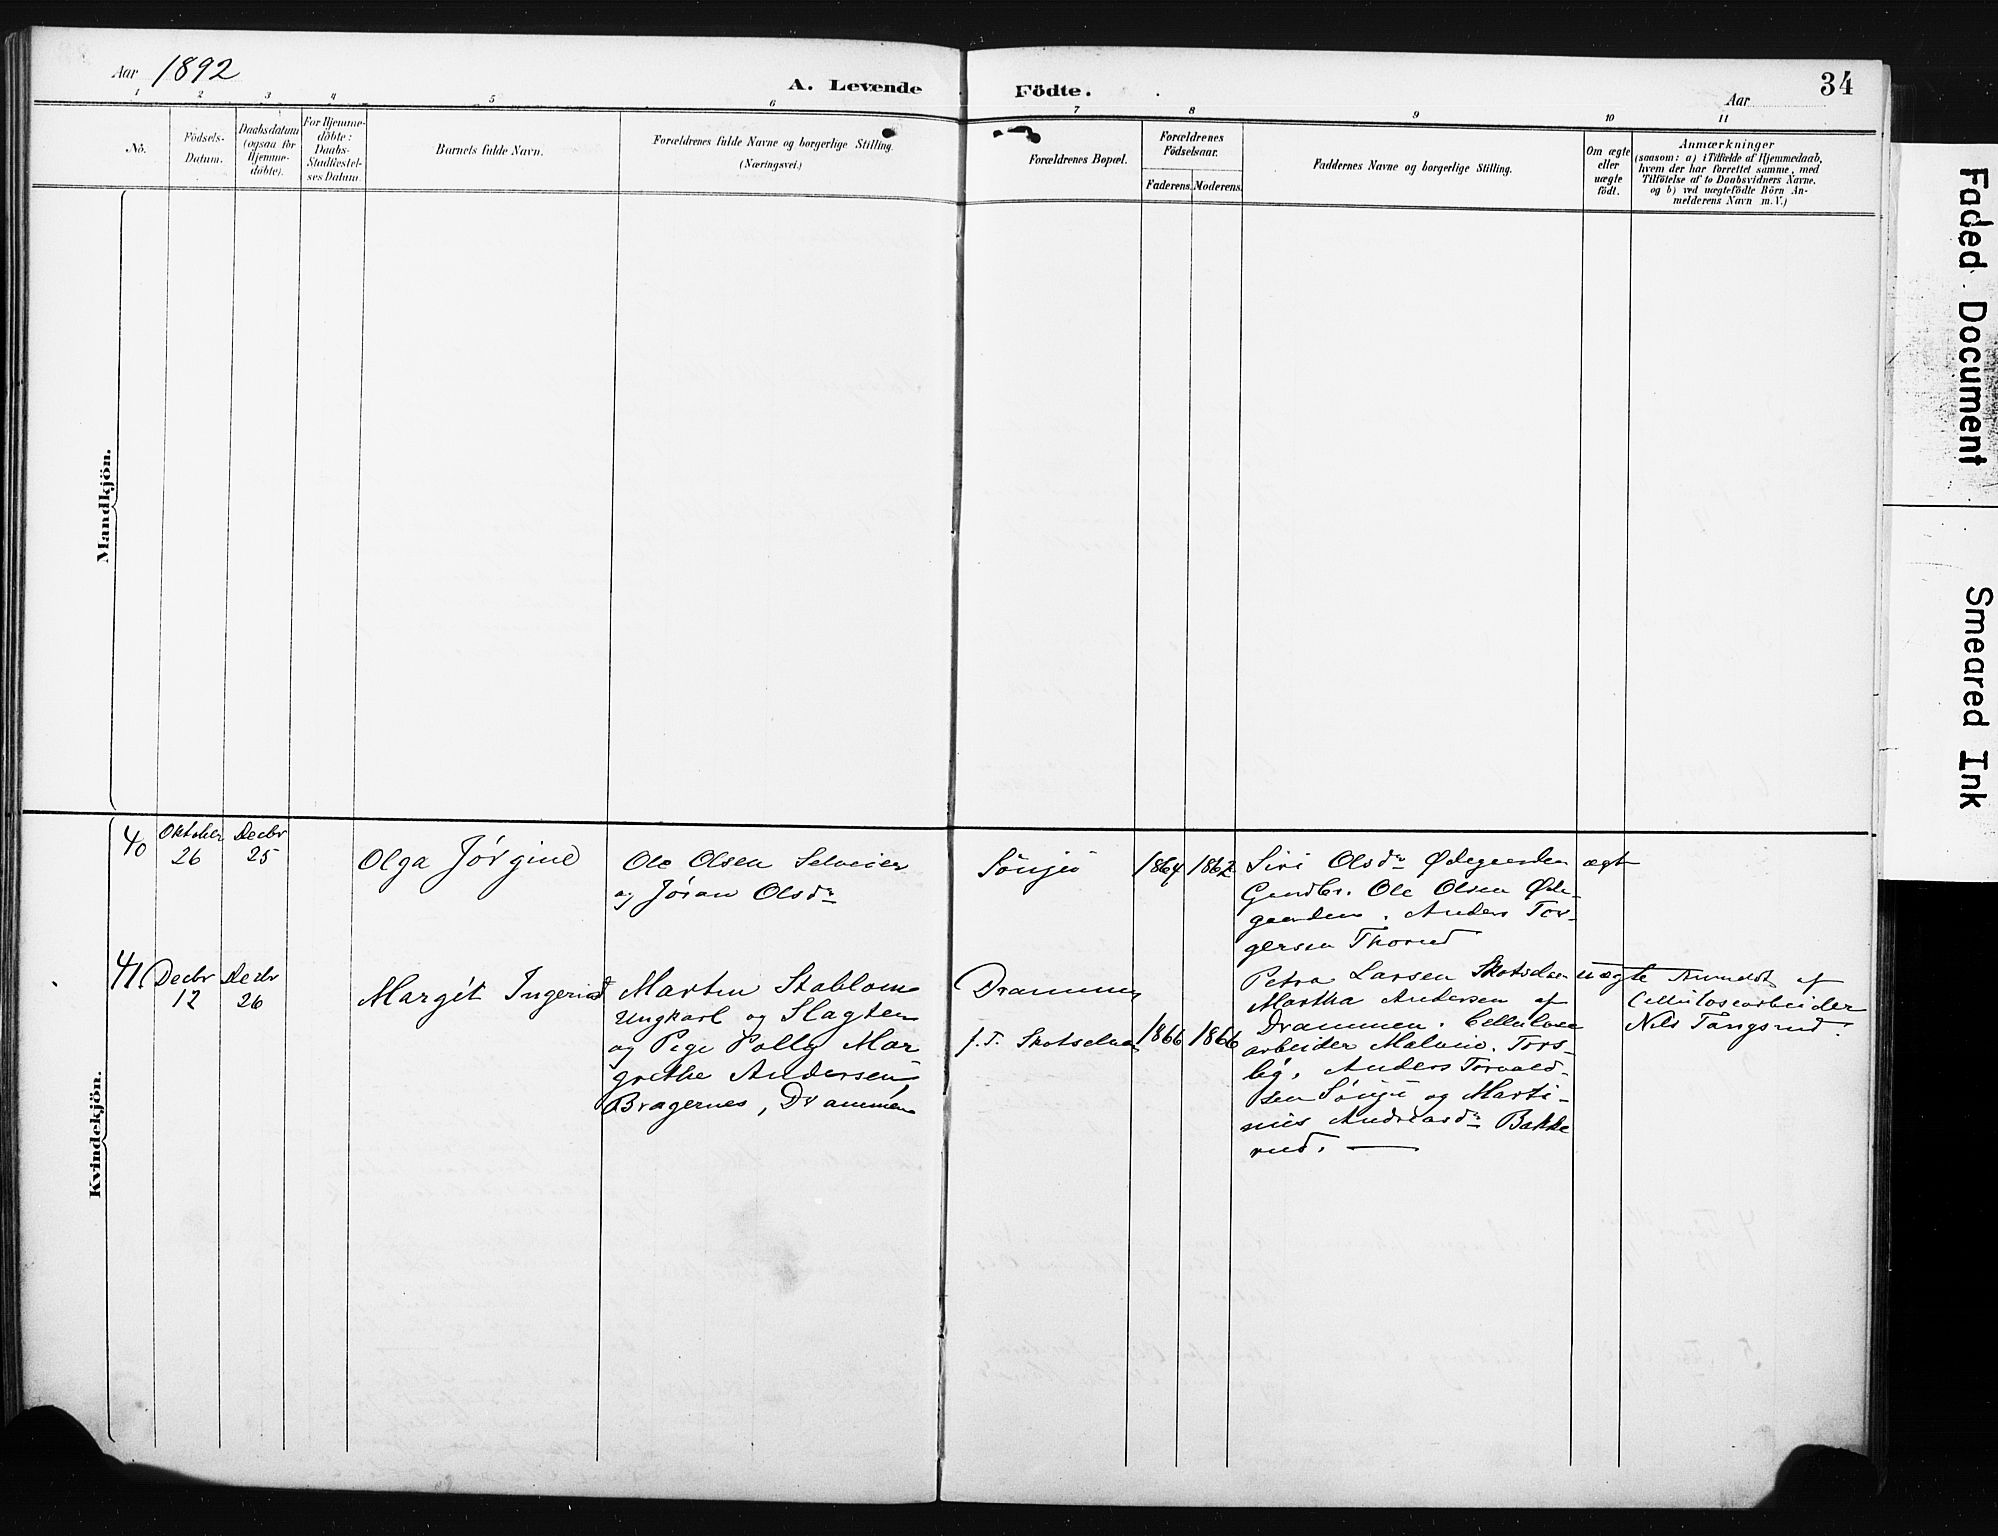 Aar 1892
A. Levende Födte.
Aar 34
1 2 3 4 5 6 7 8 9 10 11
No.
Födsels-
Datum.
Daabsdatum
(ogsaa for
Hjemme-
döbte).
For Hjemme-
döbte:
Daabs-
Stadfæstel-
ses Datum.
Barnets fulde Navn.
Forældrenes fulde Navne og borgerlige Stilling.
(Næringsvei.)
Forældrenes Bopæl.
Forældrenes
Födselsaar.
Faderens. Moderens.
Faddernes Navne og borgerlige Stilling.
Om ægte
eller
uægte
födt.
Anmærkninger
(saasom: a) i Tilfælde af Hjemmedaab,
hvem der har forrettet samme, med
Tilföielse af to Daabsvidners Navne,
og b) ved uægtefödte Börn An-
melderens Navn m. V.)
Mandkjön.
Kvindekjön.
40
Oktober
26
Decbr
25
Olga Jørgine
Ole Olsen Selveier
og Jøran Olsdr
Sönju
1864 1862
Siri Olsdr Ødegaarden
Gaardbr. Ole Olsen Øde-
gaarden. Anders Tor-
gersen Thorud
ægte
41
Decbr
12
Decbr
26
Margit Ingerid
Martin Stablom
Ungkarl og Slagter
og Pige Polly Mar-
grethe Andersen,
Bragernes, Drammen
Drammen
f. T. Skotselven
1866 1866
Petra Larsen Skotselven
Martha Andersen af
Drammen. Cellulose
arbeider Malvin. Tors-
by. Anders Torvald-
sen Sönju og Marti-
nius Andreasdr Bakke
rud.
uægte
Anmeldt af
Cellulosearbeider
Nils Tangsrud.
Faded Document
Smeared Ink